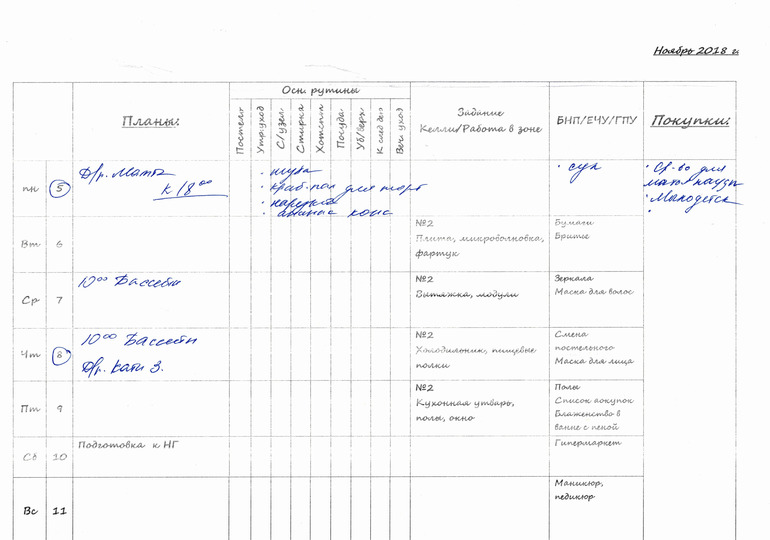 Ноябрь 2018 г.
Осн. рутины
Планы:
Постель
Утр.уход
С/узел
Стирка
Хотспот
Посуда
Уб/Верх
К след дню
Веч. уход
Задание
Келли/Работа в зоне
БНП/ЕЧУ/ГПУ
Покупки:
пн 5
Д/р. Мамы
к 18 00
· краб-пал для торт
· нарезка
· ананас конс
· суп
· Ср-во для
Вт 6
№2
Плита, микроволновка,
фартук
Бумаги
Бритье
Ср 7
10 00 Бассейн
№2
Вытяжка, модули
Зеркала
Маска для волос
Чт 8
10 00 Бассейн
Д/р. Кати З.
№2
Холодильник, пищевые
полки
Смена
постельного
Маска для лица
Пт 9
№2
Кухонная утварь,
полы, окно
Полы
Список покупок
Блаженство в
ванне с пеной
Сб 10
Подготовка к НГ
Гипермаркет
Вс 11
Маникюр,
педикюр